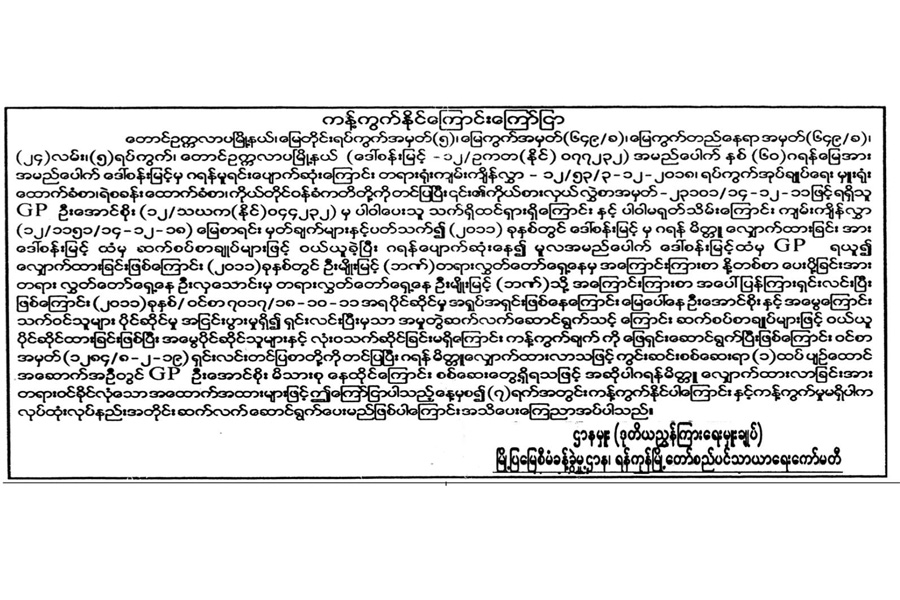 ကန့်ကွက်နိုင်ကြောင်းကြော်ငြာ
တောင်ဥက္ကလာပမြို့နယ်၊မြေတိုင်းရပ်ကွက်အမှတ်(၅)၊မြေကွက်အမှတ်(၆၄၉/ခ)၊မြေကွက်တည်နေရာအမှတ်(၆၄၉/ခ)၊
(၂၄)လမ်း၊(၅)ရပ်ကွက်၊ တောင်ဥက္ကလာပမြို့နယ် (ဒေါ်စန်းမြင့် -၁၂/ဥကတ(နိုင်) ၀၇၇၂၃၂) အမည်ပေါက် နှစ် (၆၀)ဂရန်မြေအား
အမည်ပေါက် ဒေါ်စန်းမြင့်မှ ဂရန်မူရင်းပျောက်ဆုံးကြောင်း တရားရုံးကျမ်းကျိန်လွှာ - ၁၂/၅၃/၃-၁၂-၂၀၁၈၊ ရပ်ကွက်အုပ်ချုပ်ရေး မှူးရုံး
ထောက်ခံစာ၊ရဲစခန်း ထောက်ခံစာ၊ကိုယ်တိုင်ဝန်ခံကတိတို့ကိုတင်ပြပြီး၎င်း၏ကိုယ်စားလှယ်လွှဲစာအမှတ်-၂၃၁၀၁/၁၄-၁၂-၁၁ဖြင့်ရရှိသူ
GP ဦးအောင်စိုး (၁၂/သဃက(နိုင်)၀၄၄၂၃၂) မှ ပါဝါပေးသူ သက်ရှိထင်ရှားရှိကြောင်း နှင့် ပါဝါမရုတ်သိမ်းကြောင်း ကျမ်းကျိန်လွှာ
(၁၂/၁၁၅၁/၁၄-၁၂-၁၈) မြေစာရင်း မှတ်ချက်များနှင့်ပတ်သက်၍ (၂၀၁၁) ခုနှစ်တွင် ဒေါ်စန်းမြင့် မှ ဂရန် မိတ္တူ လျှောက်ထားခြင်း အား
ဒေါ်စန်းမြင့် ထံမှ ဆက်စပ်စာချုပ်များဖြင့် ဝယ်ယူခဲ့ပြီး ဂရန်ပျောက်ဆုံးနေ၍ မူလအမည်ပေါက် ဒေါ်စန်းမြင့်ထံမှ GP ရယူ၍
လျှောက်ထားခြင်းဖြစ်ကြောင်း (၂၀၁၁)ခုနှစ်တွင် ဦးမျိုးမြင့် (ဘဏ်)တရားလွှတ်တော်ရှေ့နေမှ အကြောင်းကြားစာ နို့တစ်စာ ပေးပို့ခြင်းအား
တရား လွှတ်တော်ရှေ့နေ ဦးလှသောင်းမှ တရားလွှတ်တော်ရှေ့နေ ဦးမျိုးမြင့် (ဘဏ်)သို့ အကြောင်းကြားစာ အပေါ် ပြန်ကြားရှင်းလင်းပြီး
ဖြစ်ကြောင်း (၂၀၁၁)ခုနှစ်/ ဝင်စာ ၇၀၁၇/၁၈-၁၀-၁၁ အရပိုင်ဆိုင်မှု အရှုပ်အရှင်းဖြစ်နေကြောင်း မြေပေါ်နေ ဦးအောင်စိုးနှင့် အမွေကြောင်း
သက်ဝင်သူများ ပိုင်ဆိုင်မှု အငြင်းပွားမှုရှိ၍ ရှင်းလင်းပြီးမှသာ အမှုတွဲဆက်လက်ဆောင်ရွက်သင့် ကြောင်း ဆက်စပ်စာချုပ်များဖြင့် ဝယ်ယူ
ပိုင်ဆိုင်ထားခြင်းဖြစ်ပြီး အမွေပိုင်ဆိုင်သူများနှင့် လုံးဝသက်ဆိုင်ခြင်းမရှိကြောင်း ကန့်ကွက်ချက် ကို ဖြေရှင်းဆောင်ရွက်ပြီးဖြစ်ကြောင်း ဝင်စာ
အမှတ်(၁၂၈၄/၈-၂-၁၉) ရှင်းလင်းတင်ပြစာတို့ကို တင်ပြပြီး ဂရန် မိတ္တူလျှောက်ထားလာသဖြင့် ကွင်းဆင်းစစ်ဆေးရာ (၁)ထပ် ပျဉ်ထောင်
အဆောက်အဦတွင် GP ဦးအောင်စိုး မိသားစု နေထိုင်ကြောင်း စစ်ဆေးတွေ့ရှိရသဖြင့် အဆိုပါဂရန်မိတ္တူ လျှောက်ထားလာခြင်းအား
တရားဝင်ခိုင်လုံသော အထောက်အထားများဖြင့် ဤကြော်ငြာပါသည့်နေ့မှစ၍ (၇)ရက်အတွင်းကန့်ကွက်နိုင်ပါကြောင်း နှင့်ကန့်ကွက်မှုမရှိပါက
လုပ်ထုံးလုပ်နည်းအတိုင်း ဆက်လက်ဆောင်ရွက်ပေးမည်ဖြစ်ပါကြောင်း အသိပေးကြေညာအပ်ပါသည်။
ဌာနမှူး (ဒုတိယညွှန်ကြားရေးမှူးချုပ်)
မြို့ပြမြေစီမံခန့်ခွဲမှုဌာန၊ ရန်ကုန်မြို့တော်စည်ပင်သာယာရေးကော်မတီ